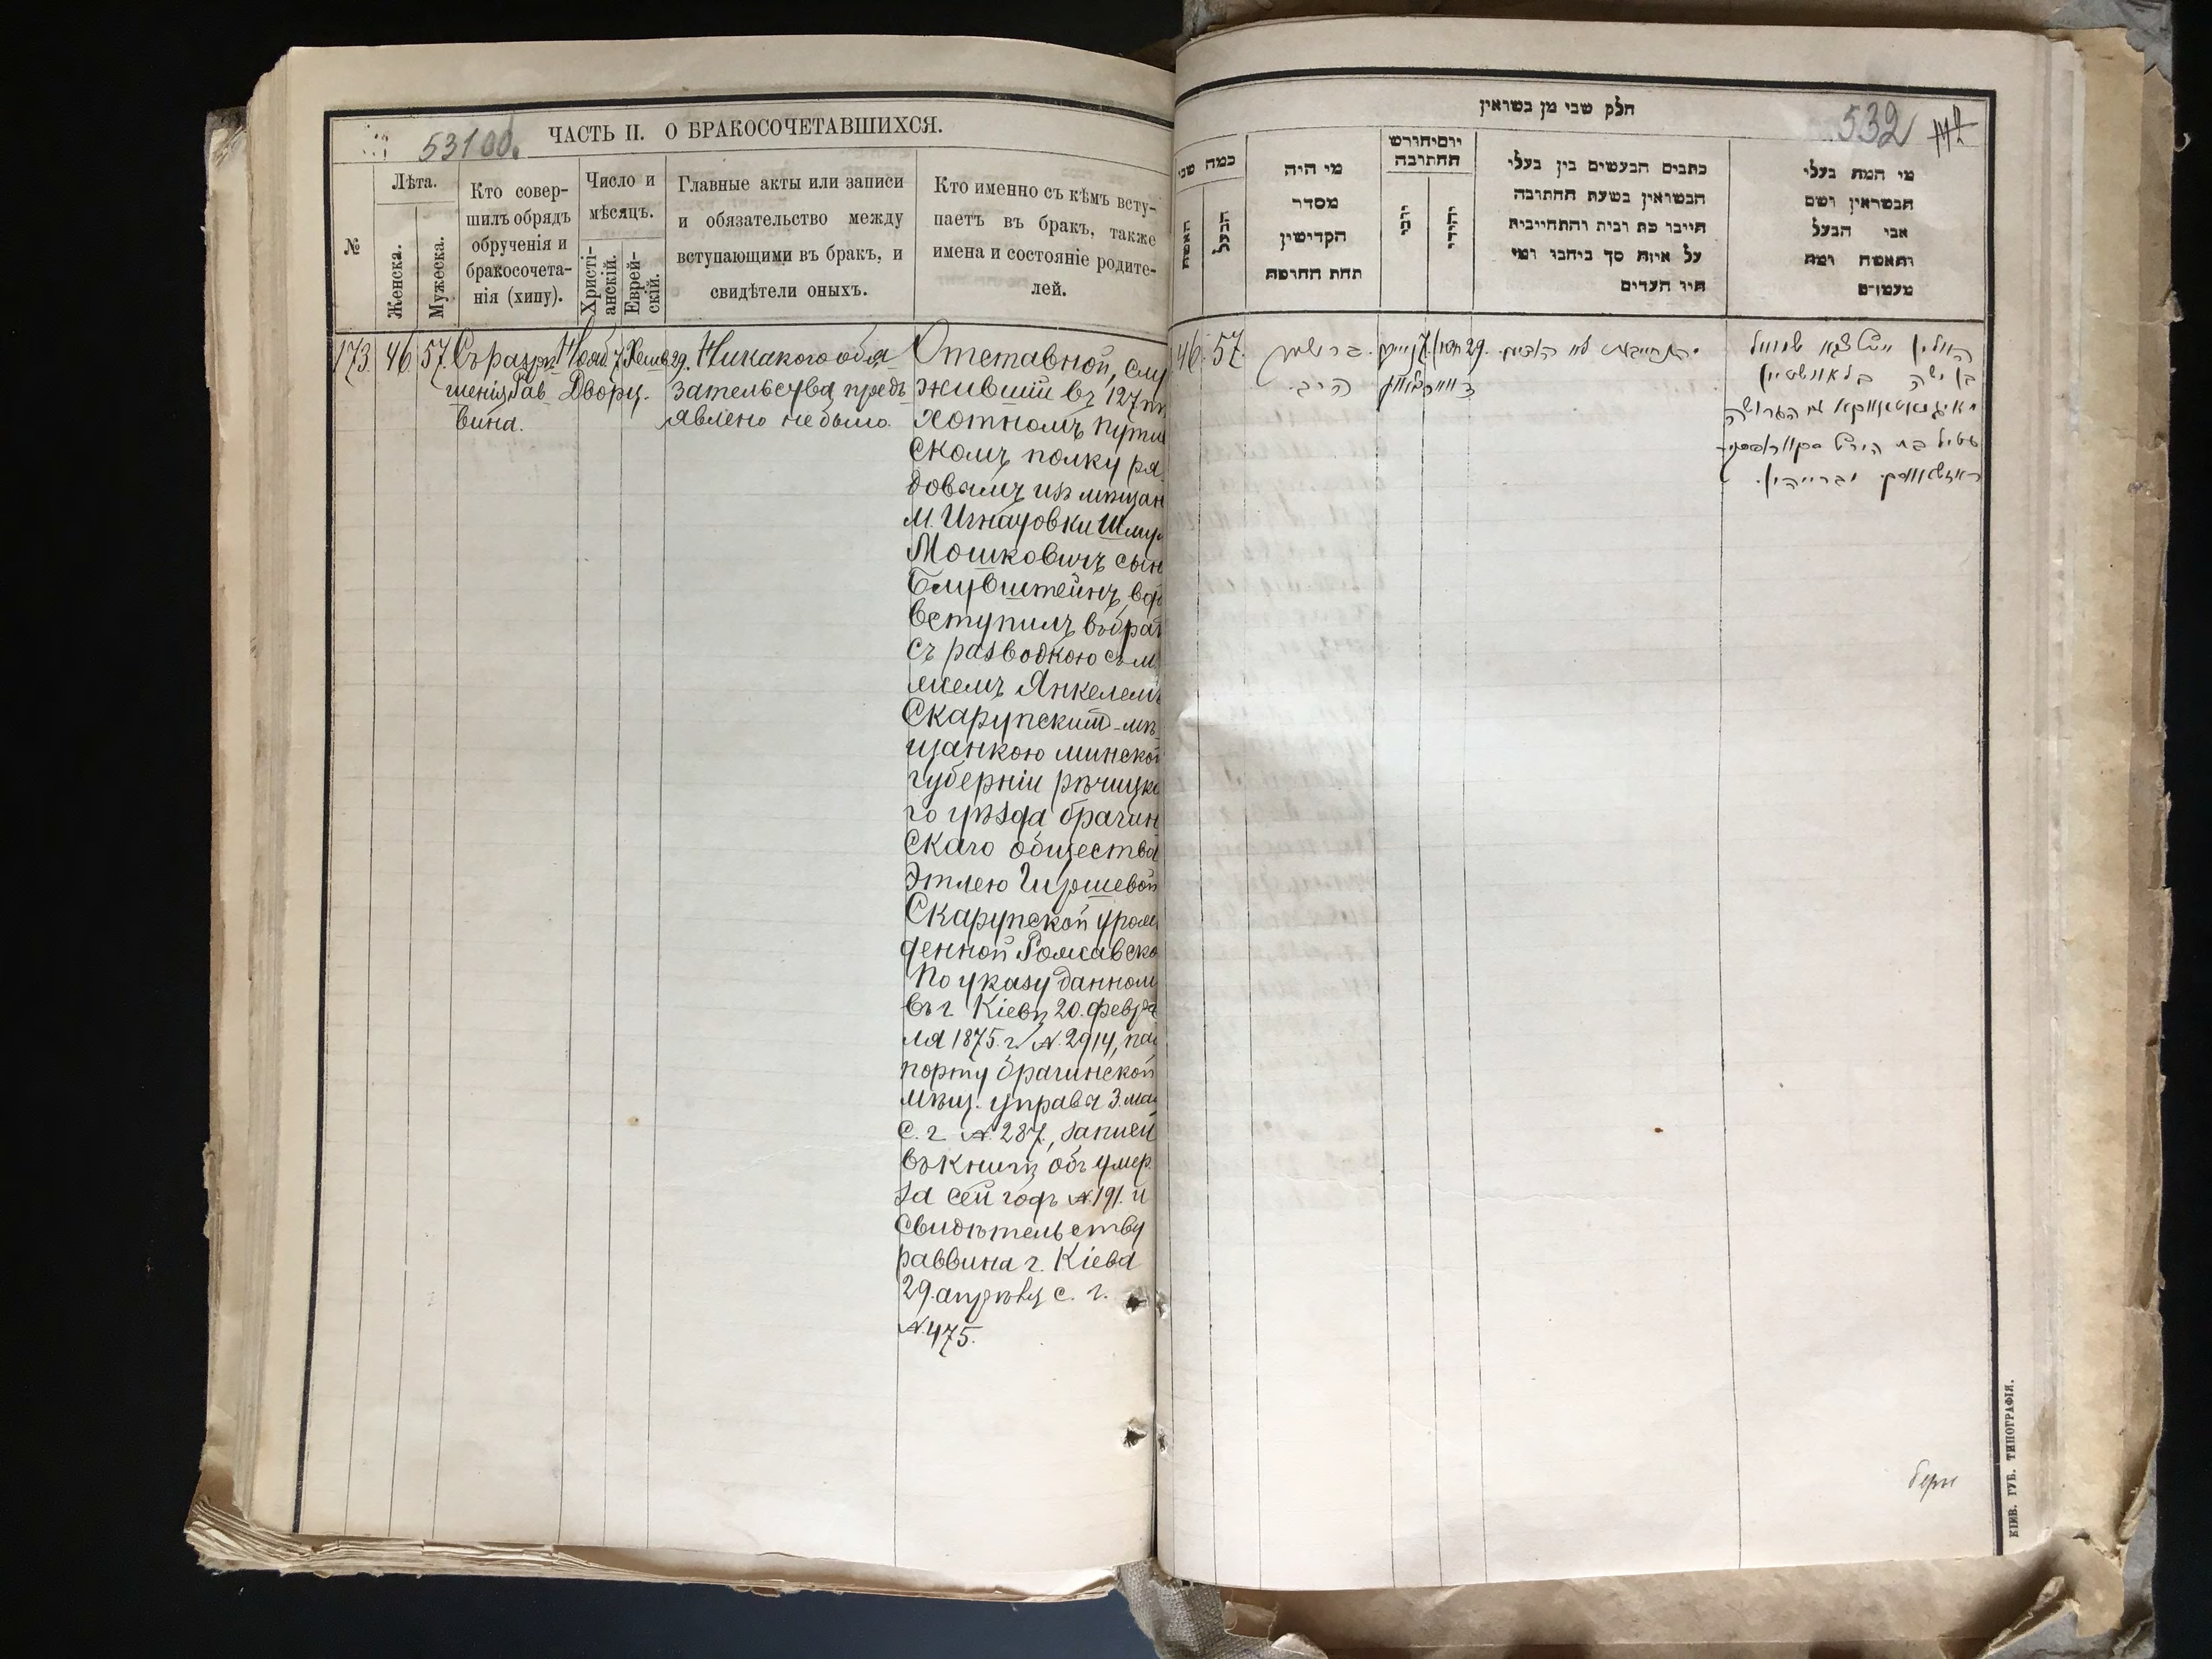 53100.
ЧАСТЬ II. О БРАКОСОЧЕТАВШИХСЯ.
№
Лѣта.
Женска.
Мужеска.
Кто совер-
шилъ обрядъ
обрученія и
бракосочета-
нія (хипу).
Число и
мѣсяцъ.
Христі-
анскій.
Еврей-
скій.
Главные акты или записи
и обязательство между
вступающими въ бракъ, и
свидѣтели оныхъ.
Кто именно съ кѣмъ всту-
паетъ въ бракъ, также
имена и состояніе родите-
лей.
173. 46. 57. Съ разрѣ-
шенія Рав
вина.
Нояб 7.
Двору.
Хешв 29.
Никакого обя
зательства предъ
явлено не было.
Отставной, слу
жившій въ 127 пѣ
хотномъ Путив
скомъ полку ря
довымъ изъ мѣщан
м. Игнатовки Шмул
Мошковичъ сын
Блувштейнъ, вдо
вступилъ въ брак
съ разводкою съ му
жемъ Янкелемъ
Скарупскимъ мѣ-
щанкою минской
губерніи рѣчицка
го уѣзда брагин
скаго общества
Этлею Гиршевой
Скарупской урож
денной Рожавско
По указу данном
въ г. Кіевѣ 20. февра
ля 1875. г. № 2914, пас
порту брагинской
мѣщ. управы 3. мая
с. г. № 287, записи
въ книгѣ объ умер.
за сей годъ № 191. и
свидѣтельству
раввина г. Кіева
29. апрѣля с. г.
№ 475.
חלק שני מן בשואין
532
כמה שני
האשה
הבעל
מי היה
מסדר
הקדישין
תחת החופה
יום וחודש
החתובה
ירמי
יהודי
כתבים הנעשים בין בעלי
הנשואין בשעת החתובה
חייבו כת ובית והתחייבית
על איזה סך ביחבו ומי
היו העדים
מי המה בעלי
הנשואין ושם
אבי הבעל
והאשה ומה
מעמדם
46. 57.
7
29.
שמואל
בן משה בלאושטיין
הגרושה
עטיל בת הירש
КІЕВ. ГУБ. ТИПОГРАФІЯ.